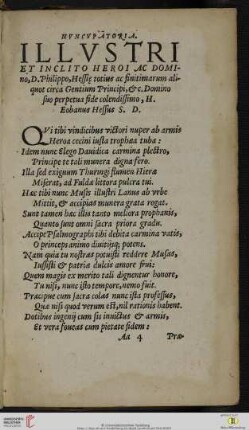 NVNCVPATORIA.
ILLVSTRI
ET INCLITO HEROI AC DOMI-
no, D. Philippo, Hessiæ totius ac finitimarum ali-
quot circa Gentium Principi, &c. Domino
suo perpetua fide colendissimo, H.
Eobanus Hessus S. D.
QVi tibi vindicibus victori nuper ab armis
Heroa cecini iusta trophæa tuba:
Idem nunc Elego Davidica carmina plectro,
Principe te toli munera digna fero.
Illa sed exiguum Thuringi flumen Hiera
Miserat, ad Fuldæ littora pulcra tui.
Hæc tibi nunc Musis illustri Lanus ab vrbe
Mittit, & accipias munera grata rogat.
Sunt tamen hæc illis tanto meliora prophanis,
Quanto sunt omni sacra priora gradu.
Accipe Psalmographi tibi debita carmina vatis,
O princeps animo divitijsq; potens.
Nam quia tu nostras potuisti reddere Musas,
Iussisti & patriæ dulcis amore frui:
Quem magis ex merito tali dignentur honore,
Tu nisi, nunc isto tempore, nemo fuit.
Præcipue cum sacra colas nunc ista professus,
Quæ nisi quod verum est, nil rationis habent.
Dotibus ingenij cum sis invictus & armis,
Et vera foveas cum pietate fidem:
Aa 4 Præ-